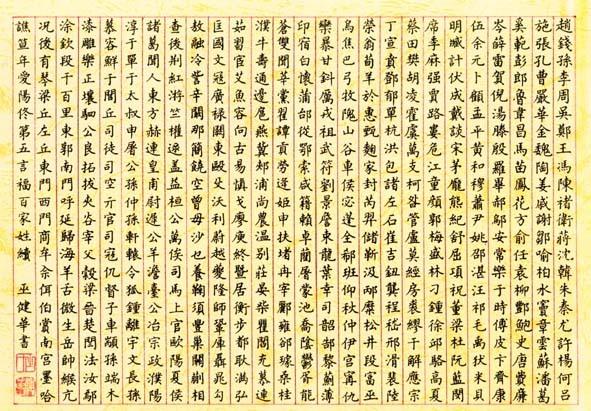 趙錢孫李周吳鄭王馮陳褚衛蔣沈韓朱秦尤許楊何呂
施張孔曹嚴華金魏陶姜戚謝鄒喻柏水竇章雲蘇潘葛
奚範彭郎魯韋昌馬苗鳳花方俞任袁柳酆鮑史唐費廉
岑薛雷賀倪湯滕殷羅畢郝鄔安常樂于時傅皮卞齊康
伍余元卜顧孟平黃和穆蕭尹姚邵湛汪祁毛禹狄米貝
明臧計伏成戴談宋茅龐熊紀舒屈項祝董梁杜阮藍閔
席季麻强賈路婁危江童顏郭梅盛林刁鍾徐邱駱高夏
蔡田樊胡凌霍虞萬支柯昝管盧莫經房裘繆干解應宗
丁宣賁鄧郁單杭洪包諸左石崔吉鈕龔程嵇邢滑裴陸
榮翁荀羊於惠甄麴家封芮羿儲靳汲邴糜松井段富巫
烏焦巴弓牧隗山谷車侯宓蓬全郗班仰秋仲伊宮寗仇
欒暴甘鈄厲戎祖武符劉景詹束龍葉幸司韶郜黎薊薄
印宿白懷蒲邰從鄂索咸籍賴卓藺屠蒙池喬陰鬱胥能
蒼雙聞莘黨翟譚貢勞逄姬申扶堵冉宰酈雍郤璩桑桂
濮牛壽通邊扈燕冀郟浦尚農溫別莊晏柴瞿閻充慕連
茹習宦艾魚容向古易慎戈廖庾終暨居衡步都耿滿弘
匡國文寇廣祿闕東毆殳沃利蔚越夔隆師鞏厙聶晁勾
敖融冷訾辛闞那簡饒空曾毋沙乜養鞠須豐巢關蒯相
查後荆紅游竺權逯蓋益桓公萬俟司馬上官歐陽夏侯
諸葛聞人東方赫連皇甫尉遲公羊澹臺公冶宗政濮陽
淳于單于太叔申屠公孫仲孫軒轅令狐鍾離宇文長孫
慕容鮮于閭丘司徒司空亓官司寇仉督子車顓孫端木
漆雕樂正壤駟公良拓拔夾谷宰父穀梁晉楚閆法汝鄢
涂欽段干百里東郭南門呼延歸海羊舌微生岳帥緱亢
況後有琴梁丘左丘東門西門商牟佘佴伯賞南宮墨哈
譙笪年愛陽佟第五言福百家姓續 巫健華書